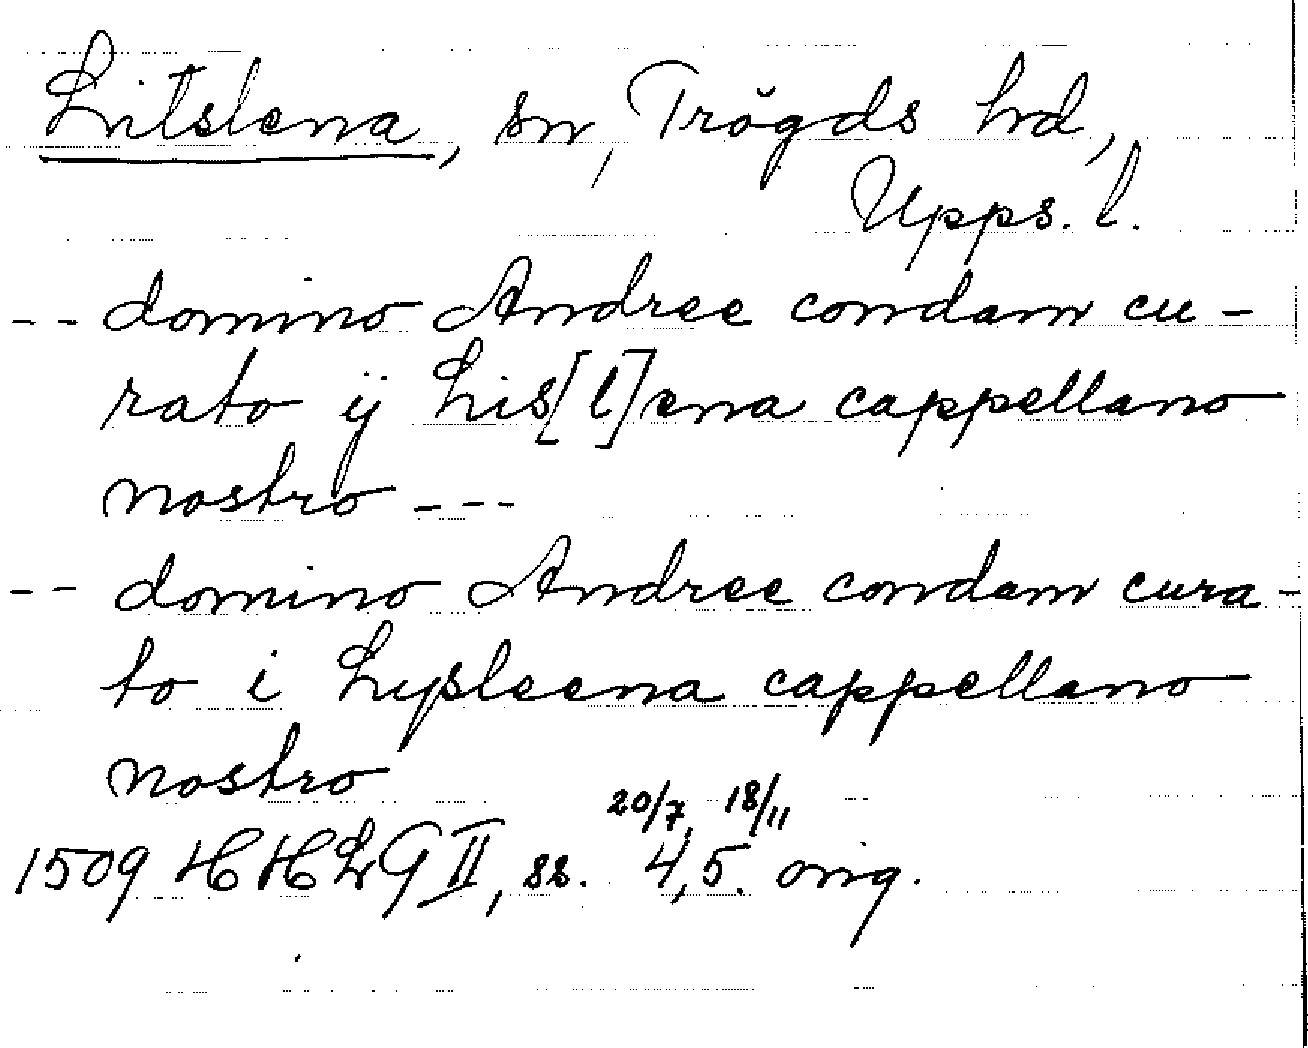 Litslena, sn, Trögds hd,
Upps. l.
-- domino Andree condam cu-
rato ij Lis[l]ena cappellano
nostro ---
-- domino Andree condam cura-
to i Lysleena cappellano
nostro
20/7, 18/11
1509 HHLG II, ss. 4,5. orig.